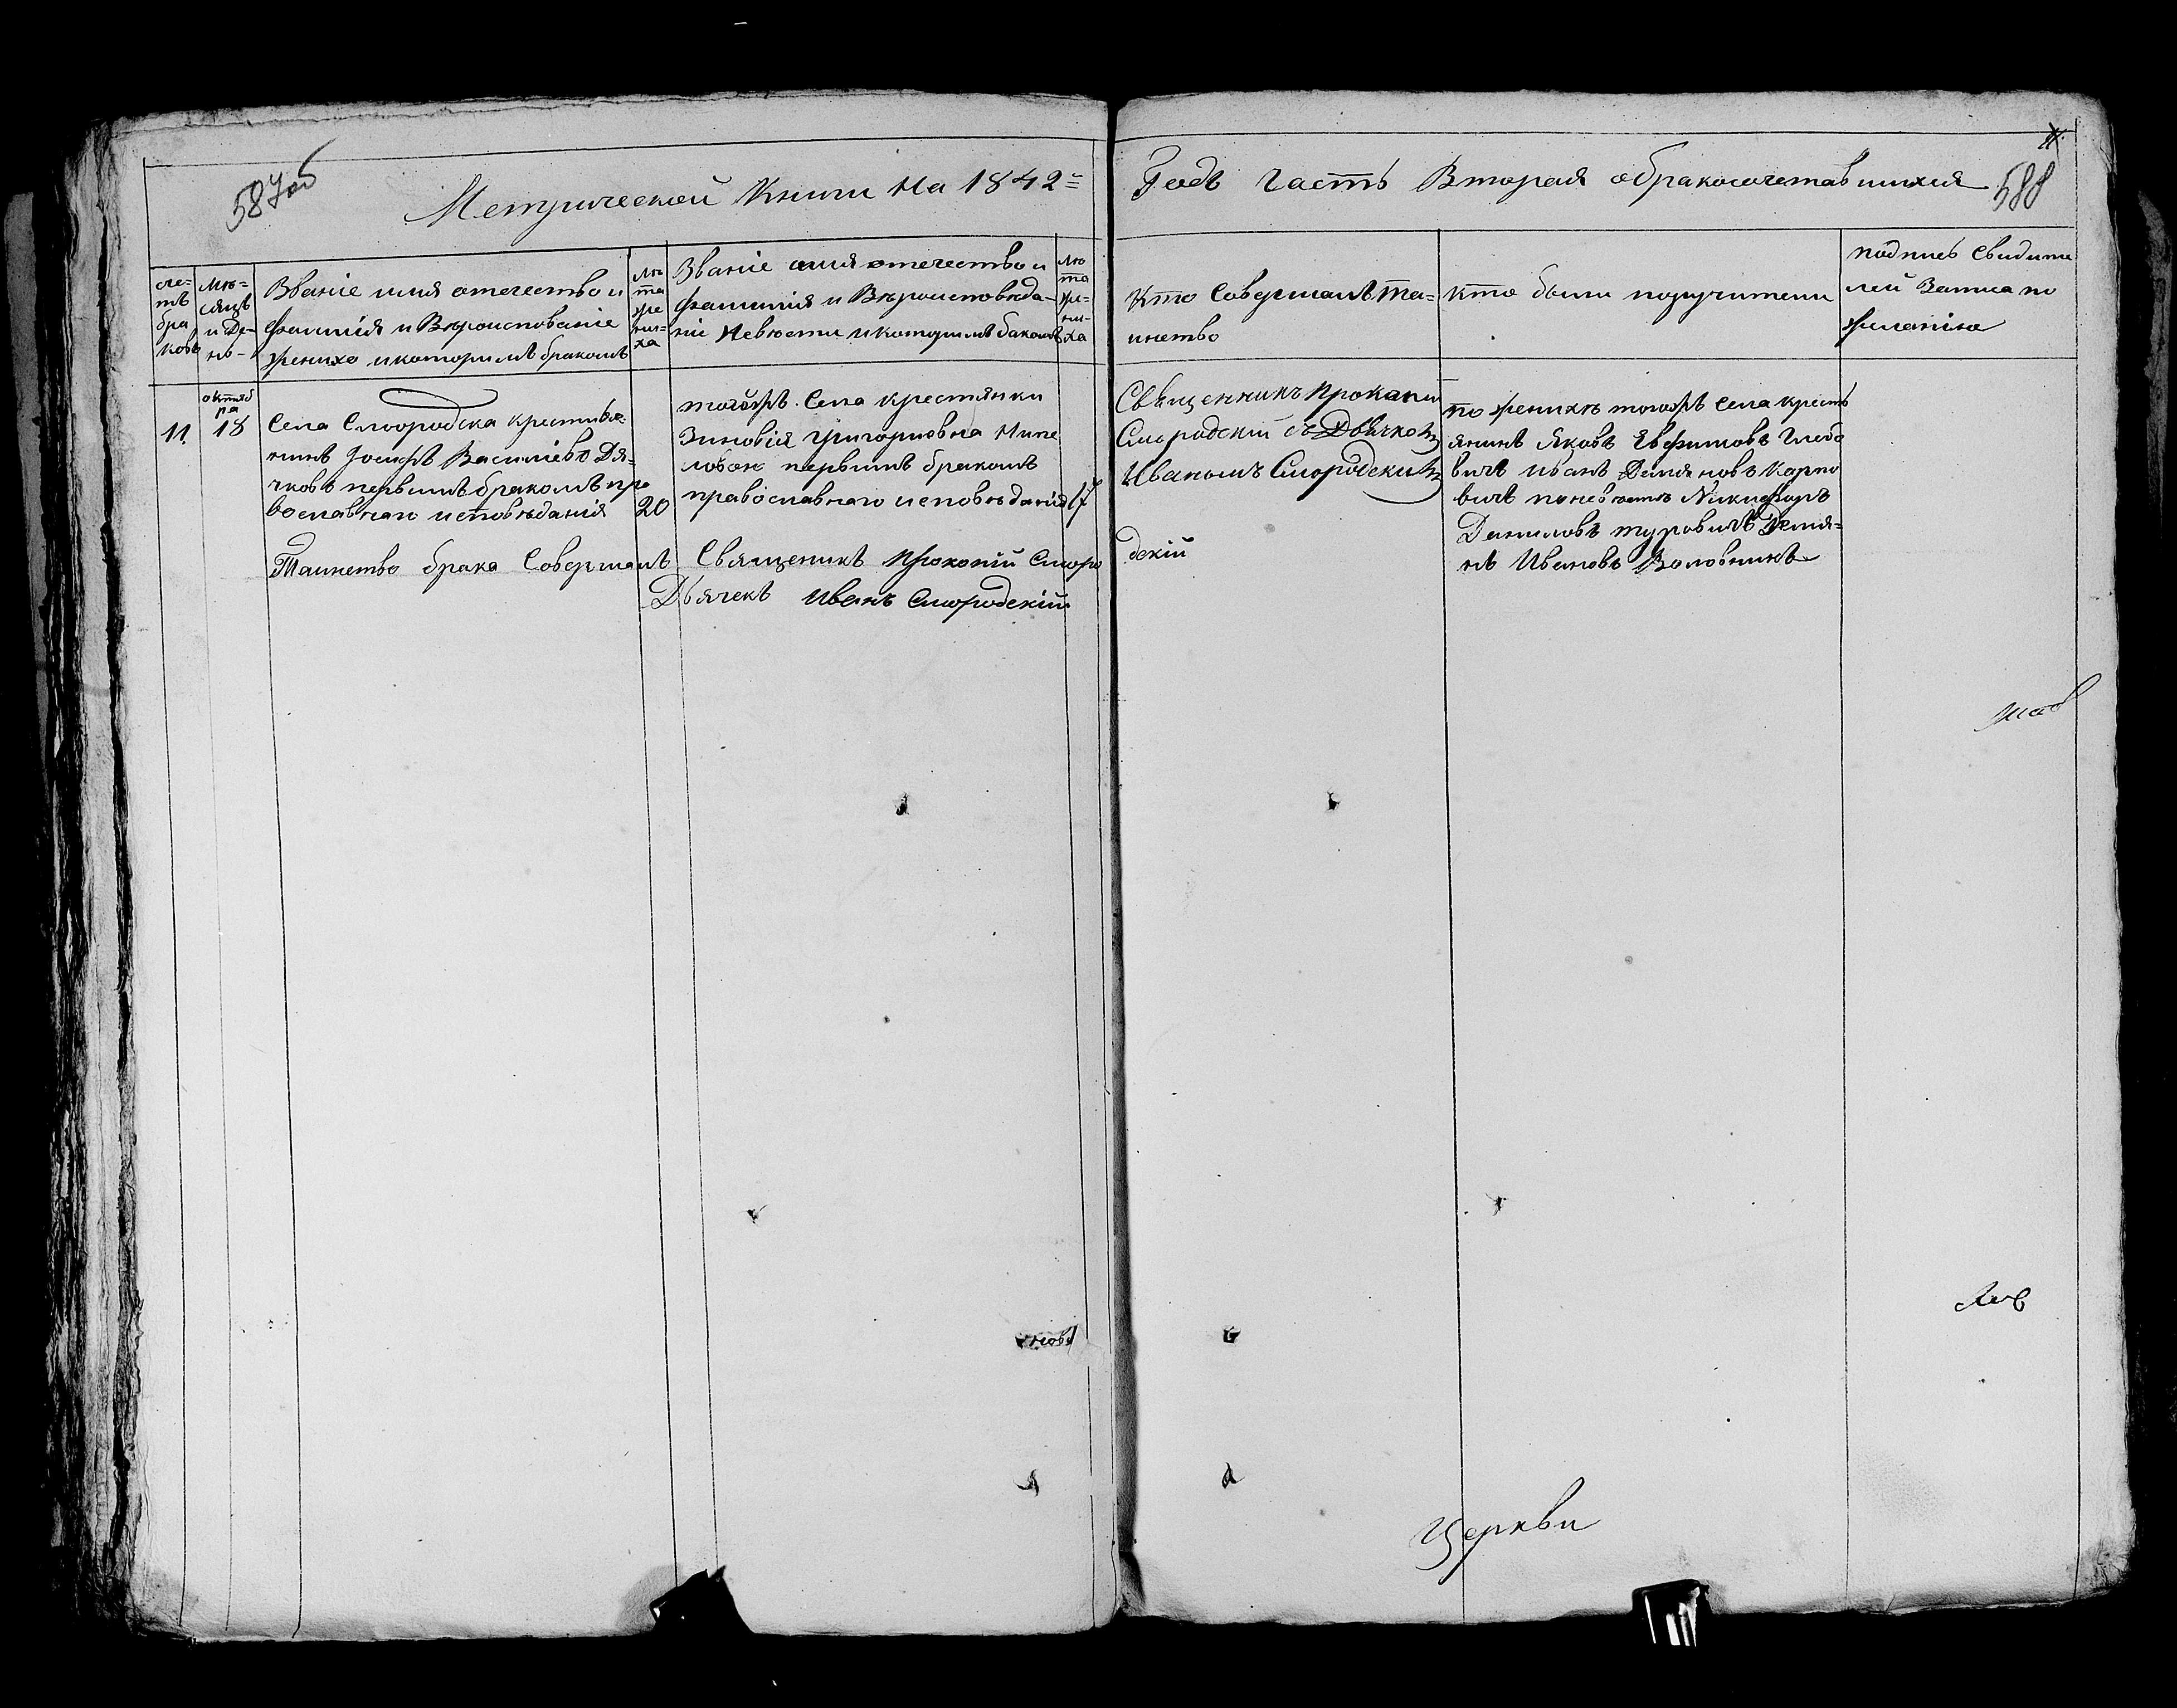 587об
Метрической Книги на 1842=
Годъ Часть Вторая о бракосочетавшихся
588
сче-
тъ
бра
ковъ
Мѣ-
сяцъ
и Де-
нь-
Званіе имя отечество и
фамилія и Вѣроисповеніе
жениха и которимъ бракомъ
Лѣ
та
же
ни-
ха
Званіе имя отечество и
фамилія и Вѣроисповѣда-
ніе Невести и которимъ бакомъ
Лѣ
та
жи-
ни-
ха
Кто Совершалъ та-
инство
кто были поручители
подпись Свидите
лей Записа по
желанію
11
октяб
ра
18
Села Смородска крестья-
нинъ Іосифъ Василіевъ Дя-
чковъ первимъ бракомъ пра
вославнаго исповѣданія
20
тогожъ Села крестянки
Зиновія Григориевна Нипе
ловон первимъ бракомъ
православнаго исповѣданія
17
Священникъ Прокапий
Смородскій съ Дьячкомъ
Иваномъ Смородскимъ
по женихѣ тогожъ Села кресть
янинъ Яковъ Евфимовъ Глебо
вичъ Иванъ Демяновъ Карпо
вичъ поневѣстѣ Никифоръ
Даниловъ туровичъ Демя-
нъ Ивановъ Воловникъ
Таинство брака Совершалъ Священикъ Прокопій Сморо
дскій
Дьячекъ Иванъ Смородскій
Церкви